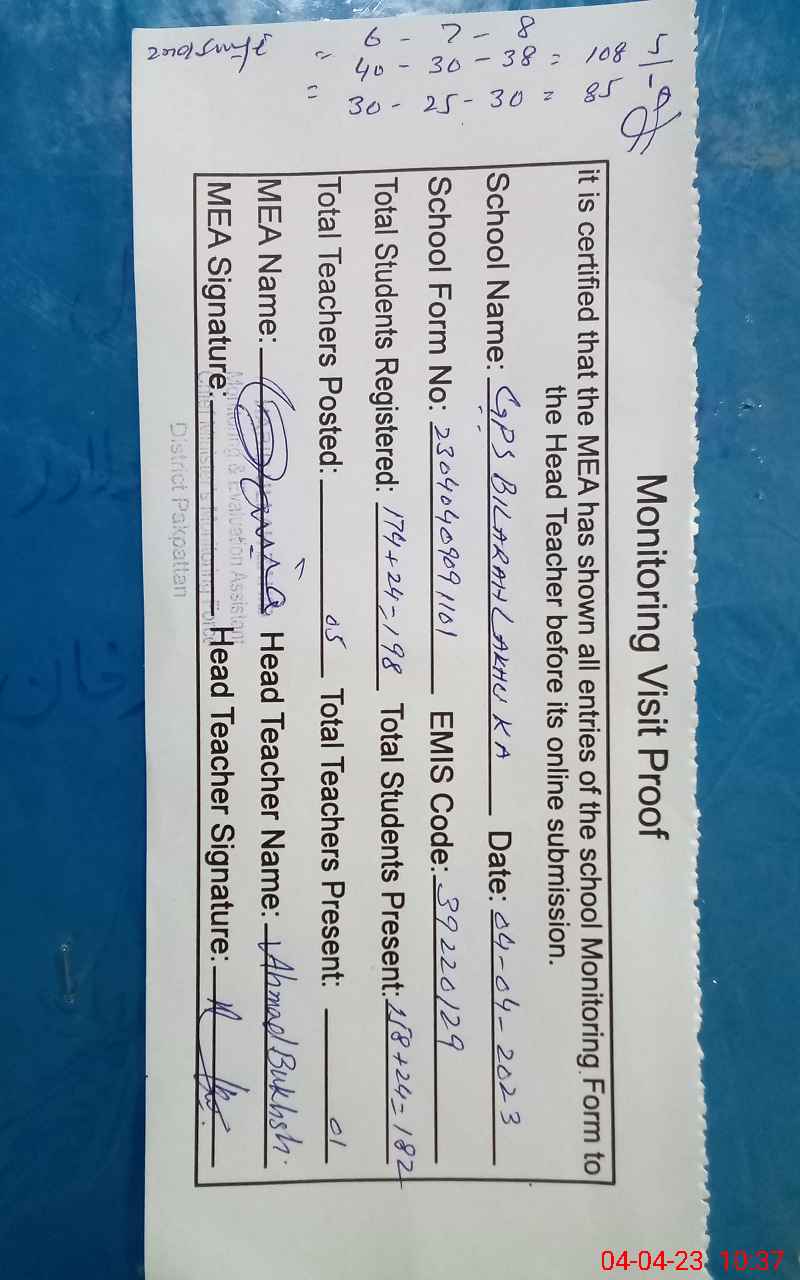 Monitoring Visit Proof
it is certified that the MEA has shown all entries of the school Monitoring Form to
the Head Teacher before its online submission.
School Name: GPS BILARAH LAKHU KA Date: 04-04-2023
School Form No: 23040409091101 EMIS Code: 39220129
Total Students Registered: 174+24=198 Total Students Present: 158+24=182
Total Teachers Posted: 05 Total Teachers Present: 01
MEA Name: Head Teacher Name: Ahmad Bukhsh.
MEA Signature: Head Teacher Signature:
Monitoring & Evaluation Assistant
Chief Minister's Monitoring Force
District Pakpattan
6 - 7 - 8
= 40 - 30 - 38 = 108
= 30 - 25 - 30 = 85
04-04-23 10:37